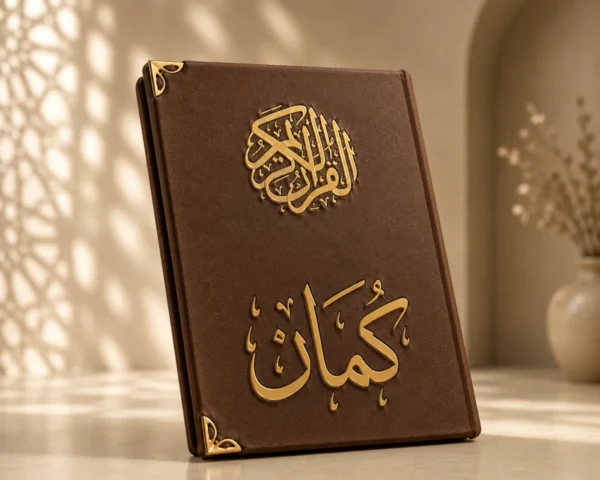 القرآن الكريم
كُمَان